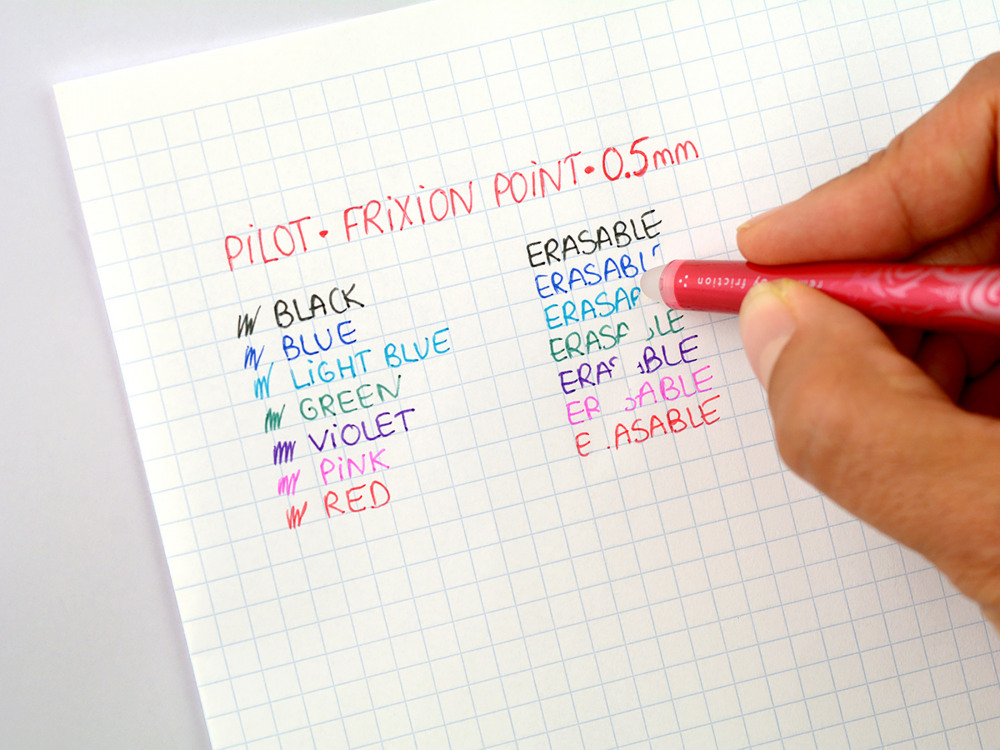 PiLOT · FRiXiON POiNT · 0.5mm
BLACK
BLUE
LiGHT BLUE
GREEN
ViOLET
PiNK
RED
ERASABLE
ERASABL
ERASA
ERAS LE
ERA BLE
ER ABLE
E ASABLE
by friction